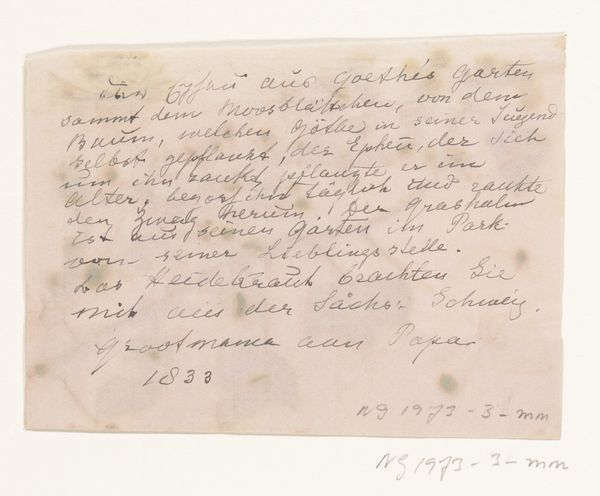 Epheu aus Goethe's Garten
sammt dem Moosblättchen, von dem
Baum, welchen Göthe in seiner Jugend
selbst gepflanzt, der Epheu, der sich
um ihn rankt pflanzte er im
Alter, begoss ihn täglich und rankte
den Zweig herum. Der Grashalm
ist aus seinen Garten im Park
von seiner Lieblingsstelle.
Das Heidekraut brachten Sie
mit aus der Sächs: Schweiz.
Grootmama aan Papa
1833
NG 1973-3-mm
NG 1973-3-mm